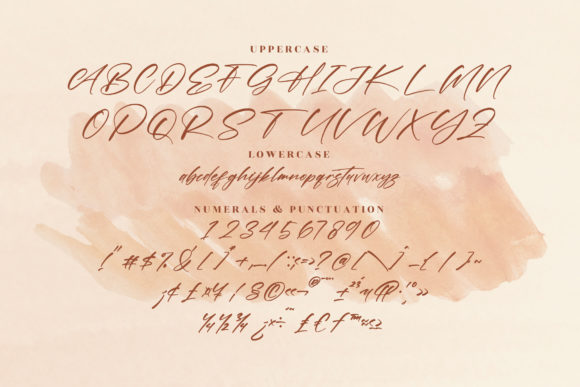 UPPERCASE
ABCDEFGHIJKLMN
OPQRSTUVWXYZ
LOWERCASE
abcdefghijklmnopqrstuvwxyz
NUMERALS & PUNCTUATION
1234567890
!"#$%&'()*+,-./:;<=>?@[\]^_{|}~
¡¢£¤¥¦§©«¬®¯°±²³´µ¶·¸¹º»
¼½¾¿×÷